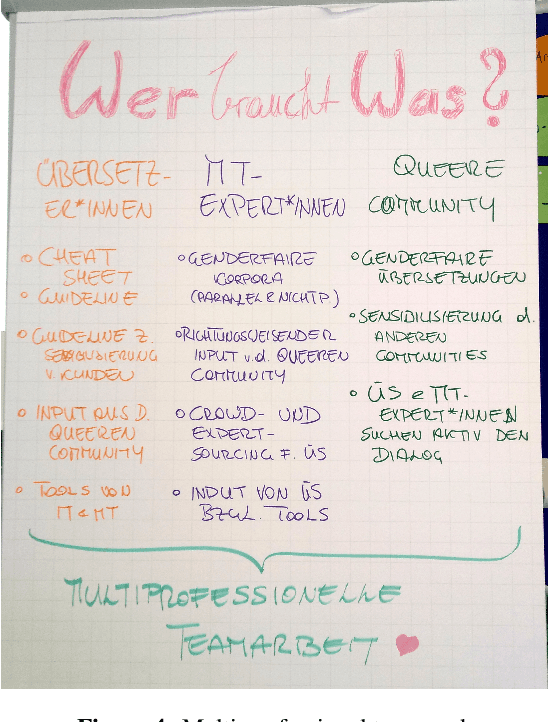 Wer braucht Was?
ÜBERSETZ-
ER*INNEN
CHEAT
SHEET
GUIDELINE
GUIDELINE Z.
SENSIBILISIERUNG
V. KUNDEN
INPUT AUS D.
QUEEREN
COMMUNITY
TOOLS VON
IT & MT
MT-
EXPERT*INNEN
GENDERFAIRE
KORPORA
(PARALLEL & NICHT P)
RICHTUNGSWEISENDER
INPUT v.d. QUEEREN
COMMUNITY
CROWD- UND
EXPERT-
SOURCING F. ÜS
INPUT VON ÜS
BZGL. TOOLS
QUEERE
COMMUNITY
GENDERFAIRE
ÜBERSETZUNGEN
SENSIDILISIERUNG d.
ANDEREN
COMMUNITIES
ÜS & MT-
EXPERT*INNEN
SUCHEN AKTIV DEN
DIALOG
MULTIPROFESSIONELLE
TEAMARBEIT